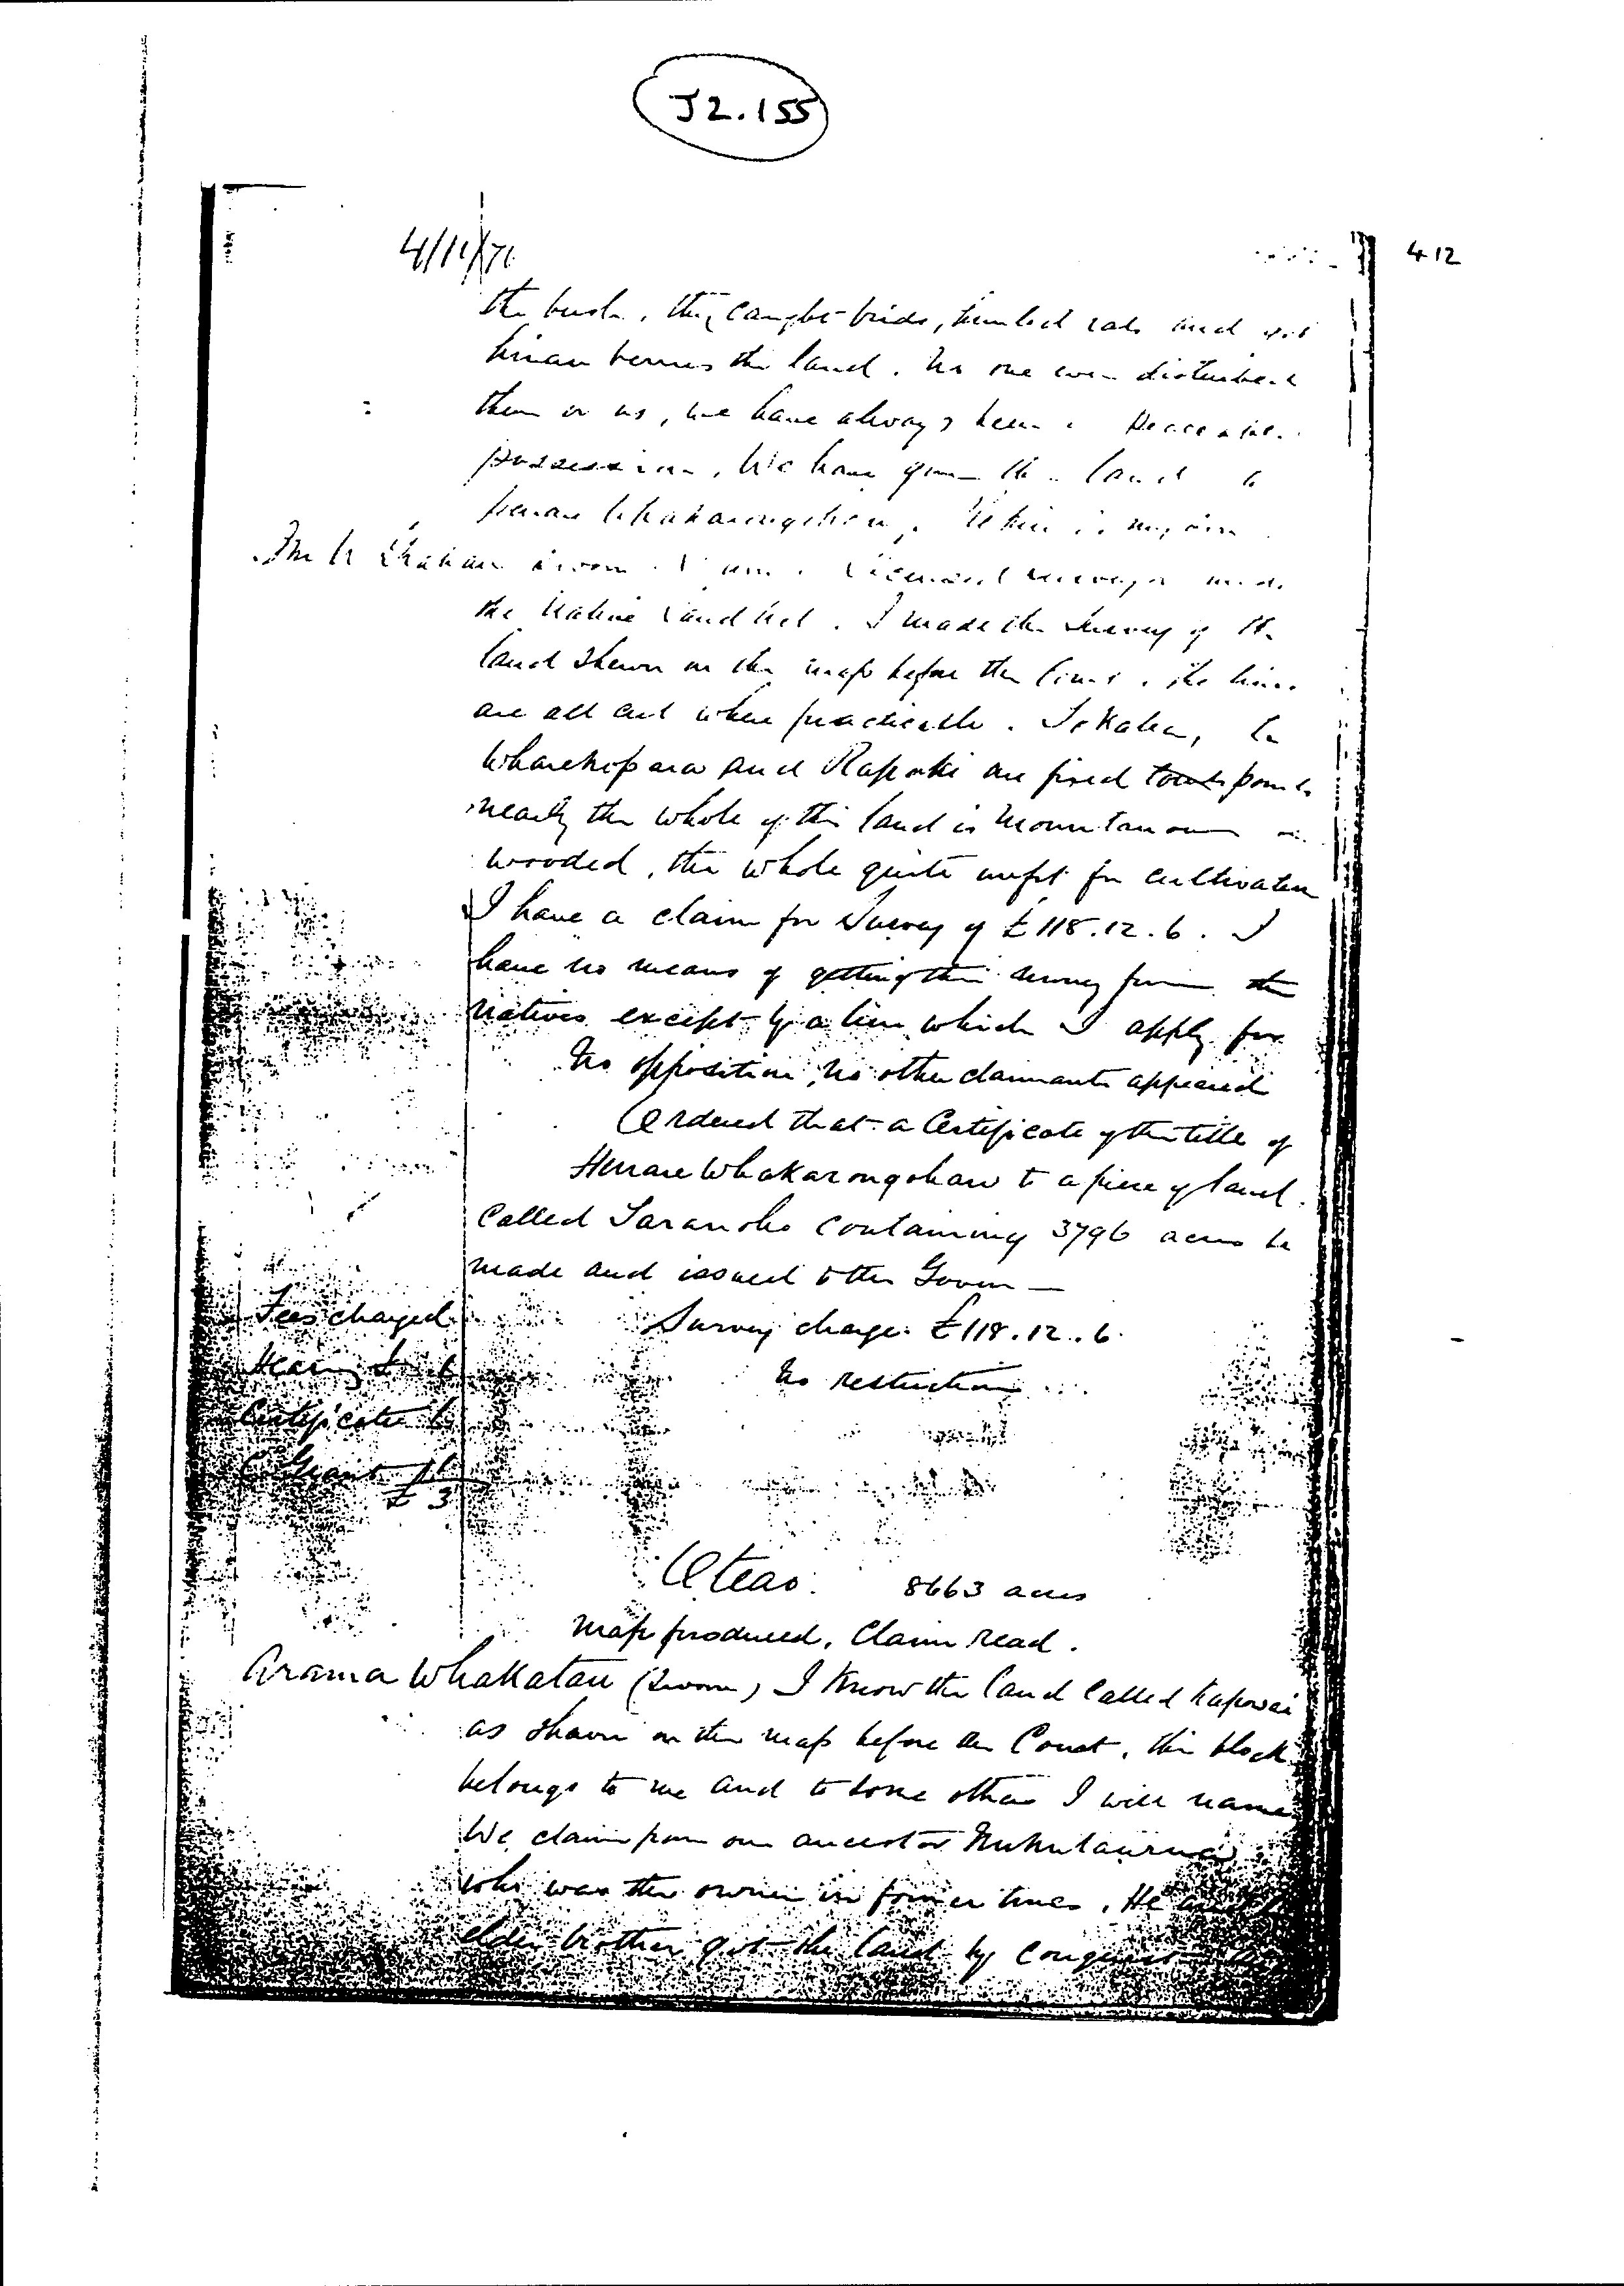 J2.155
412
4/11/71
the bush, they caught birds, hunted rats and got
hinau berries the land. No one ever disturbed
them or us, we have always been
possession. We have given the land to
Henare Whakarongohau.
Graham sworn I am a licensed surveyor under
the Native Land Act. I made the survey of the
land shewn on the map before the Court. The lines
are all cut where practicable.
Wharekopara and are fixed points
nearly the whole of this land is mountainous
wooded, the whole quite unfit for cultivation
I have a claim for survey of £118.12.6. I
have no means of getting this money from the
natives except by a lien which I apply for
No opposition, no other claimants appeared
Ordered that a Certificate of the title of
Henare Whakarongohau to a piece of land
called Taranoho containing 3796 acres be
made and issued to the Govern—
Fees charged
Survey charge £118.12.6
Hearing £
No restriction
Certificate
C. Grant
£3
Oteao. 8663 acres
Map produced, Claim read.
Arama Whakatau (sworn) I know the land called
as shewn on the map before the Court, this block
belongs to me and to some others I will name
We claim from our ancestor Nukutaurua
who was the owner in former times. He
elder brother got the land by conquest